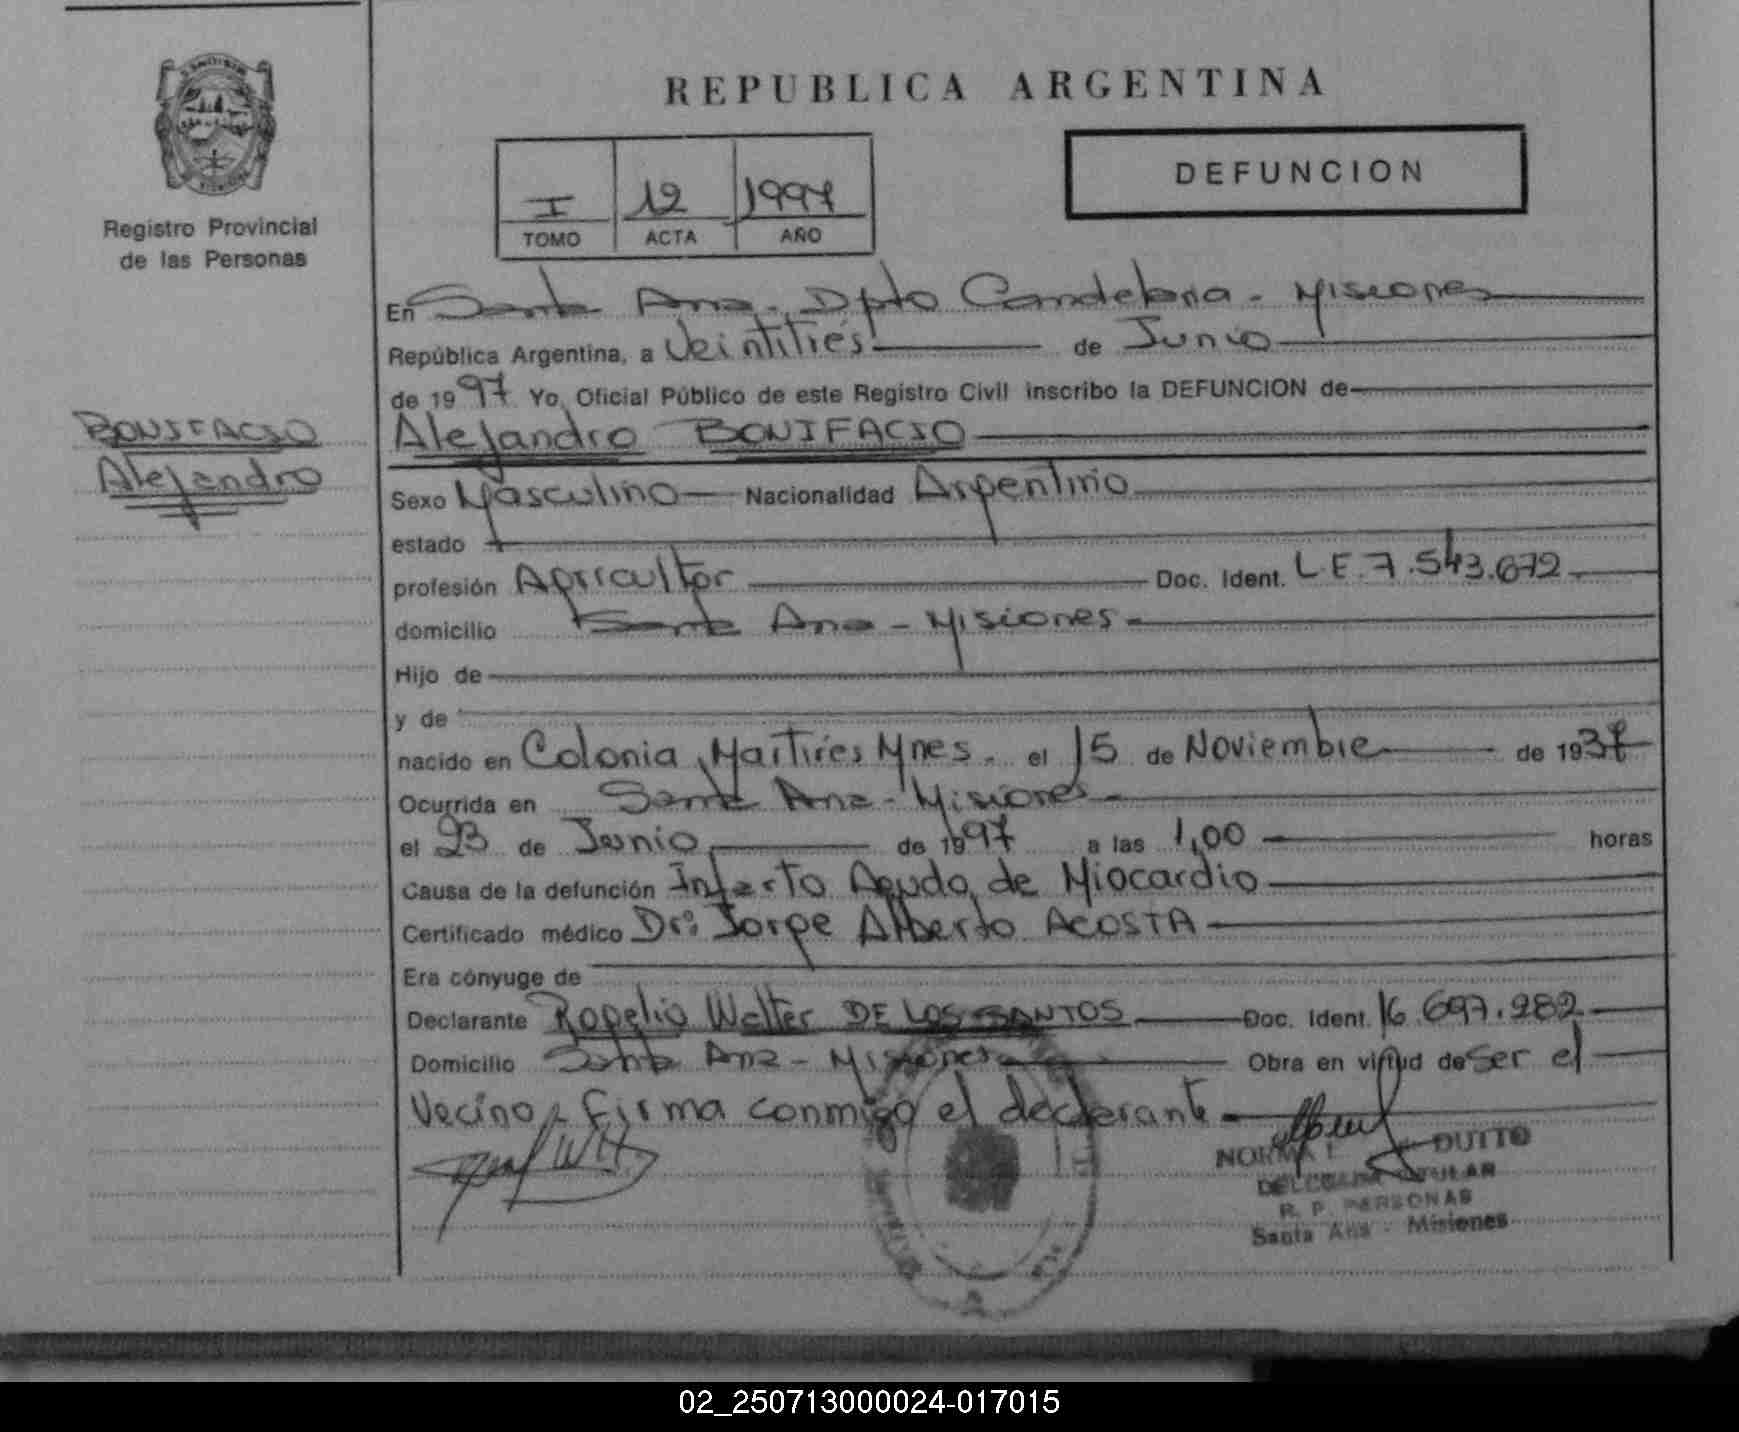 REPUBLICA ARGENTINA
DEFUNCION
I 12 1997
TOMO ACTA AÑO
Registro Provincial
de las Personas
BONIFACIO
Alejandro
En Santa Ana - Dpto Candelaria - Misiones
República Argentina, a Veintitrés de Junio
de 1997 Yo, Oficial Público de este Registro Civil inscribo la DEFUNCION de
Alejandro BONIFACIO
Sexo Masculino Nacionalidad Argentino
estado
profesión Agricultor Doc. Ident. L.E. 7.543.672
domicilio Santa Ana - Misiones
Hijo de
y de
nacido en Colonia Martires Mnes. el 15 de Noviembre de 193
Ocurrida en Santa Ana - Misiones
el 23 de Junio de 1997 a las 1,00 horas
Causa de la defunción Infarto Agudo de Miocardio
Certificado médico Dr: Jorge Alberto ACOSTA
Era cónyuge de
Declarante Rogelio Walter DE LOS SANTOS Doc. Ident. 16.697.282
Domicilio Santa Ana - Misiones Obra en virtud de Ser el
Vecino, Firma conmigo el declarante
NORMA DUTTO
DELEGADA TITULAR
R. P. PERSONAS
Santa Ana - Misiones
02_250713000024-017015